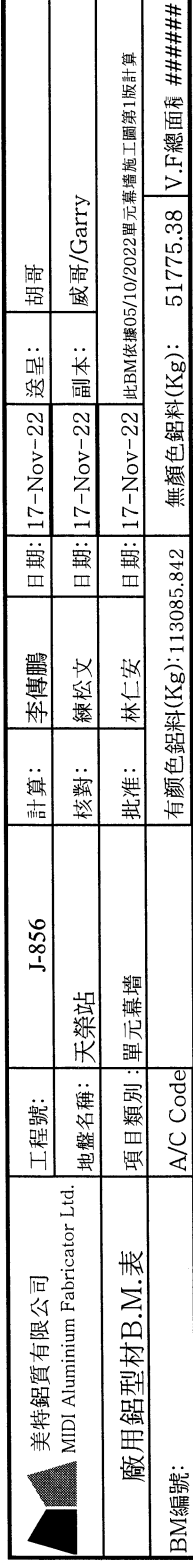 美特鋁質有限公司
MIDI Aluminium Fabricator Ltd.
工程號: J-856 計算: 李傳鵬 日期: 17-Nov-22 送呈: 胡哥
地盤名稱: 天榮站 核對: 練松文 日期: 17-Nov-22 副本: 威哥/Garry
廠用鋁型材B.M.表
項目類別: 單元幕墻 批准: 林仁安 日期: 17-Nov-22 此BM依據05/10/2022單元幕墻施工圖第1版計算
BM編號: A/C Code 有颜色鋁料(Kg): 113085.842 無顏色鋁料(Kg): 51775.38 V.F總面積 ######